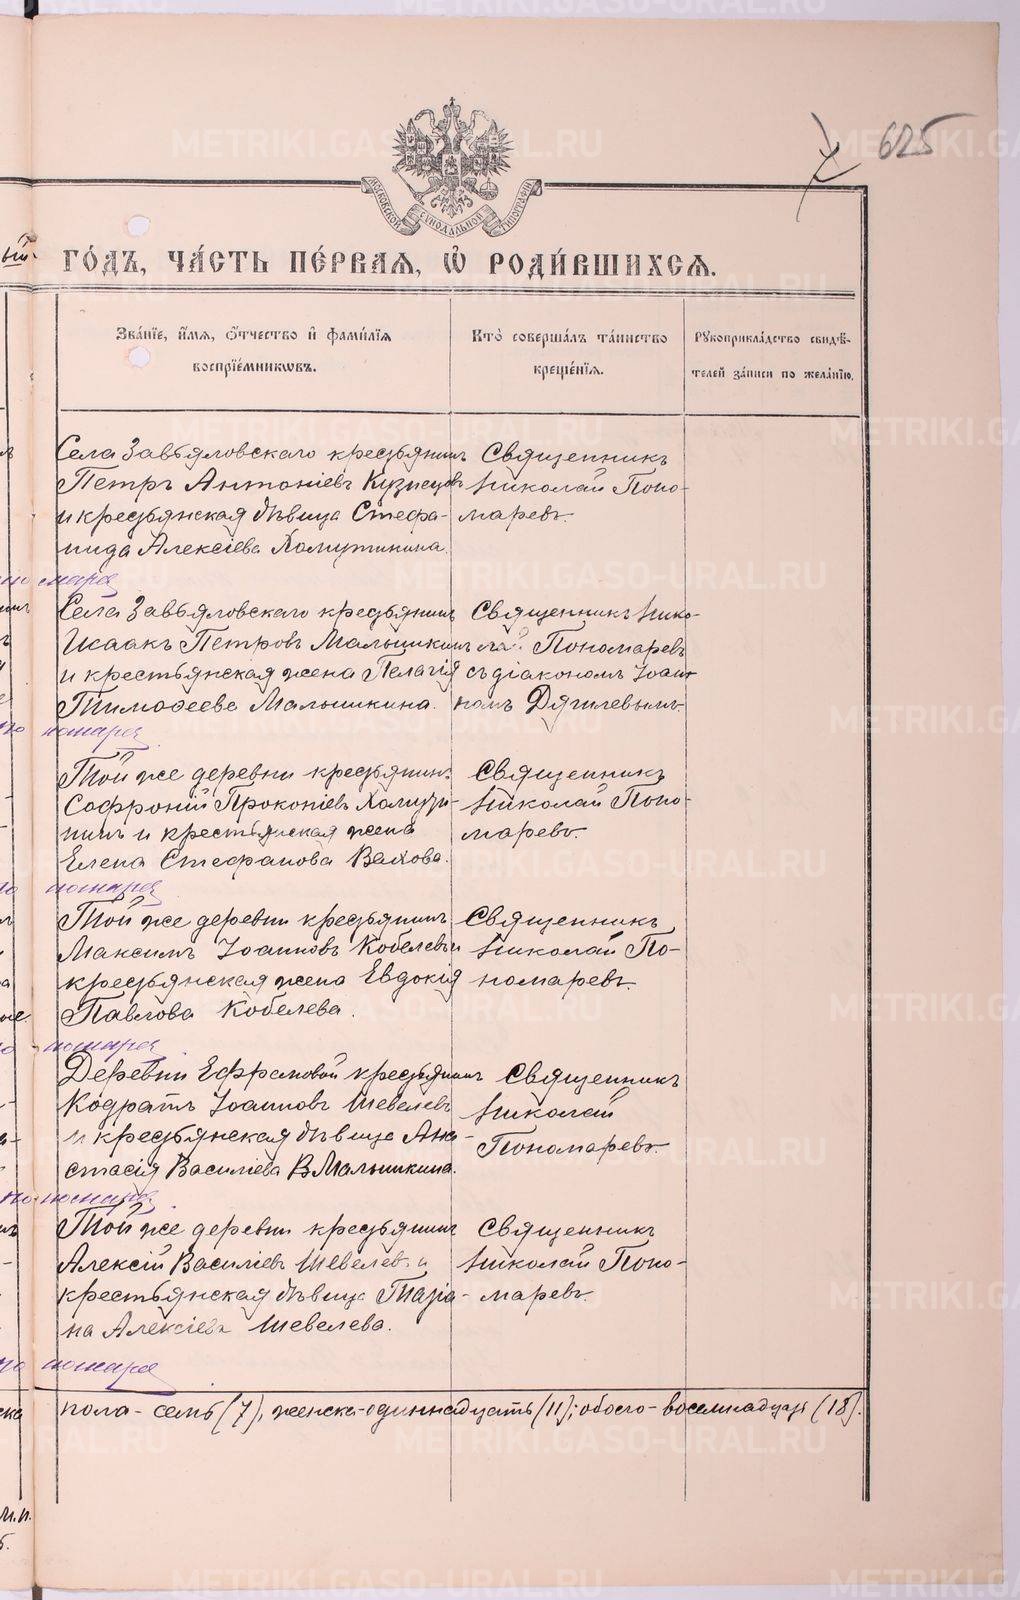 625
МОСКОВСКОЙ СУНОДАЛЬНОЙ ТИПОГРАФІИ
ГО́ДЪ, ЧА́СТЬ ПЕ́РВАѦ, Ѡ҆ РОДИ́ВШИХСѦ.
Зва́нїе, и҆́мѧ, ѻ҆́тчество и҆ фами́лїѧ
воспрїе́мникѡвъ.
Кто̀ соверша́лъ та́инство
креще́нїѧ.
Рꙋкоприкла́дство свидѣ́-
телей за́писи по жела́нїю.
Села Завьяловскаго крестьянинъ
Петръ Антоніевъ Кузнецовъ
и крестьянская дѣвица Стефа-
нида Алексіева Халитинина.
Священникъ
Николай Поно-
маревъ.
Села Завьяловскаго крестьянинъ
Исаакъ Петровъ Малышкинъ
и крестьянская жена Пелагія
Тимоѳеева Малышкина.
Священникъ Нико-
лай Пономаревъ
съ діакономъ Іоан-
номъ Дягилевымъ.
Той же деревни крестьянинъ
Софроній Прокопіевъ
и крестьянская жена
Елена Стефанова Вахова.
Священникъ
Николай Поно-
маревъ.
Той же деревни крестьянинъ
Максимъ Іоанновъ Кобелевъ и
крестьянская жена Евдокія
Павлова Кобелева.
Священникъ
Николай По-
номаревъ.
Деревни крестьянинъ
Кодратъ Іоанновъ Шевелевъ
и крестьянская дѣвица Ана-
стасія Василіева Малышкина.
Священникъ
Николай
Пономаревъ.
Той же деревни крестьянинъ
Алексій Василіевъ Шевелевъ и
крестьянская дѣвица Татіа-
на Алексіева Шевелева.
Священникъ
Николай Поно-
маревъ.
пола - семь (7), женска - одиннадцать (11); обоего - восемнадцать (18).
METRIKI.GASO-URAL.RU